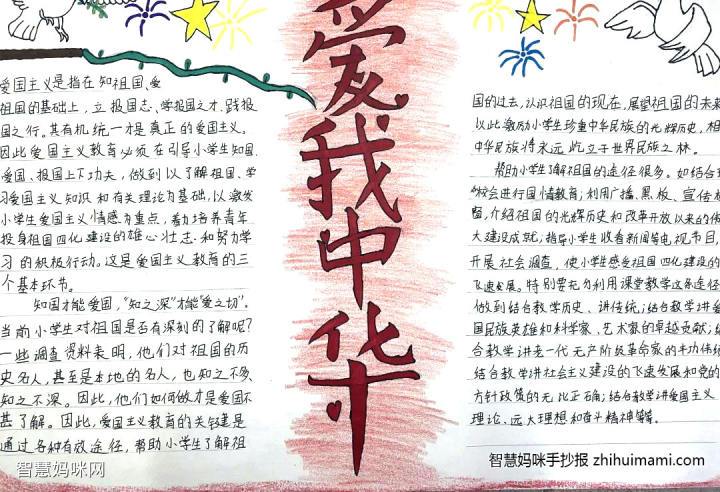 爱我中华
爱国主义是指在知祖国、爱
祖国的基础上，立报国志、学报国之才、践报
国之行。其有机统一才是真正的爱国主义。
因此爱国主义教育必须在引导小学生知国、
爱国、报国上下功夫，做到以了解祖国、学
习爱国主义知识和有关理论为基础，以激发
小学生爱国主义情感为重点，着力培养青年
投身祖国四化建设的雄心壮志和努力学
习的积极行动。这是爱国主义教育的三
个基本环节。
知国才能爱国，“知之深”才能“爱之切”。
当前小学生对祖国是否有深刻的了解呢？
一些调查资料表明，他们对祖国的历
史名人，甚至是本地的名人，也知之不多、
知之不深。因此，他们如何做才是爱国不
甚了解。因此，爱国主义教育的关键是
通过各种有效途径，帮助小学生了解祖
国的过去，认识祖国的现在，展望祖国的未来
以此激励小学生珍重中华民族的光辉历史，相
中华民族将永远屹立于世界民族之林。
帮助小学生了解祖国的途径很多。如结合
校会进行国情教育；利用广播、黑板、宣传
窗，介绍祖国的光辉历史和改革开放以来的伟
大建设成就；指导小学生收看新闻等电视节目，
开展社会调查，使小学生感受祖国四化建设的
飞速发展。特别要充分利用课堂教学这条途径
做到结合教学历史、讲传统；结合教学讲爱
国民族英雄和科学家、艺术家的卓越贡献；结
合教学讲老一代无产阶级革命家的丰功伟绩
结合教学讲社会主义建设的飞速发展和党的
方针政策的无比正确；结合教学讲爱国主义
理论、远大理想和奋斗精神等。
智慧妈咪网
智慧妈咪手抄报 zhihuimami.com